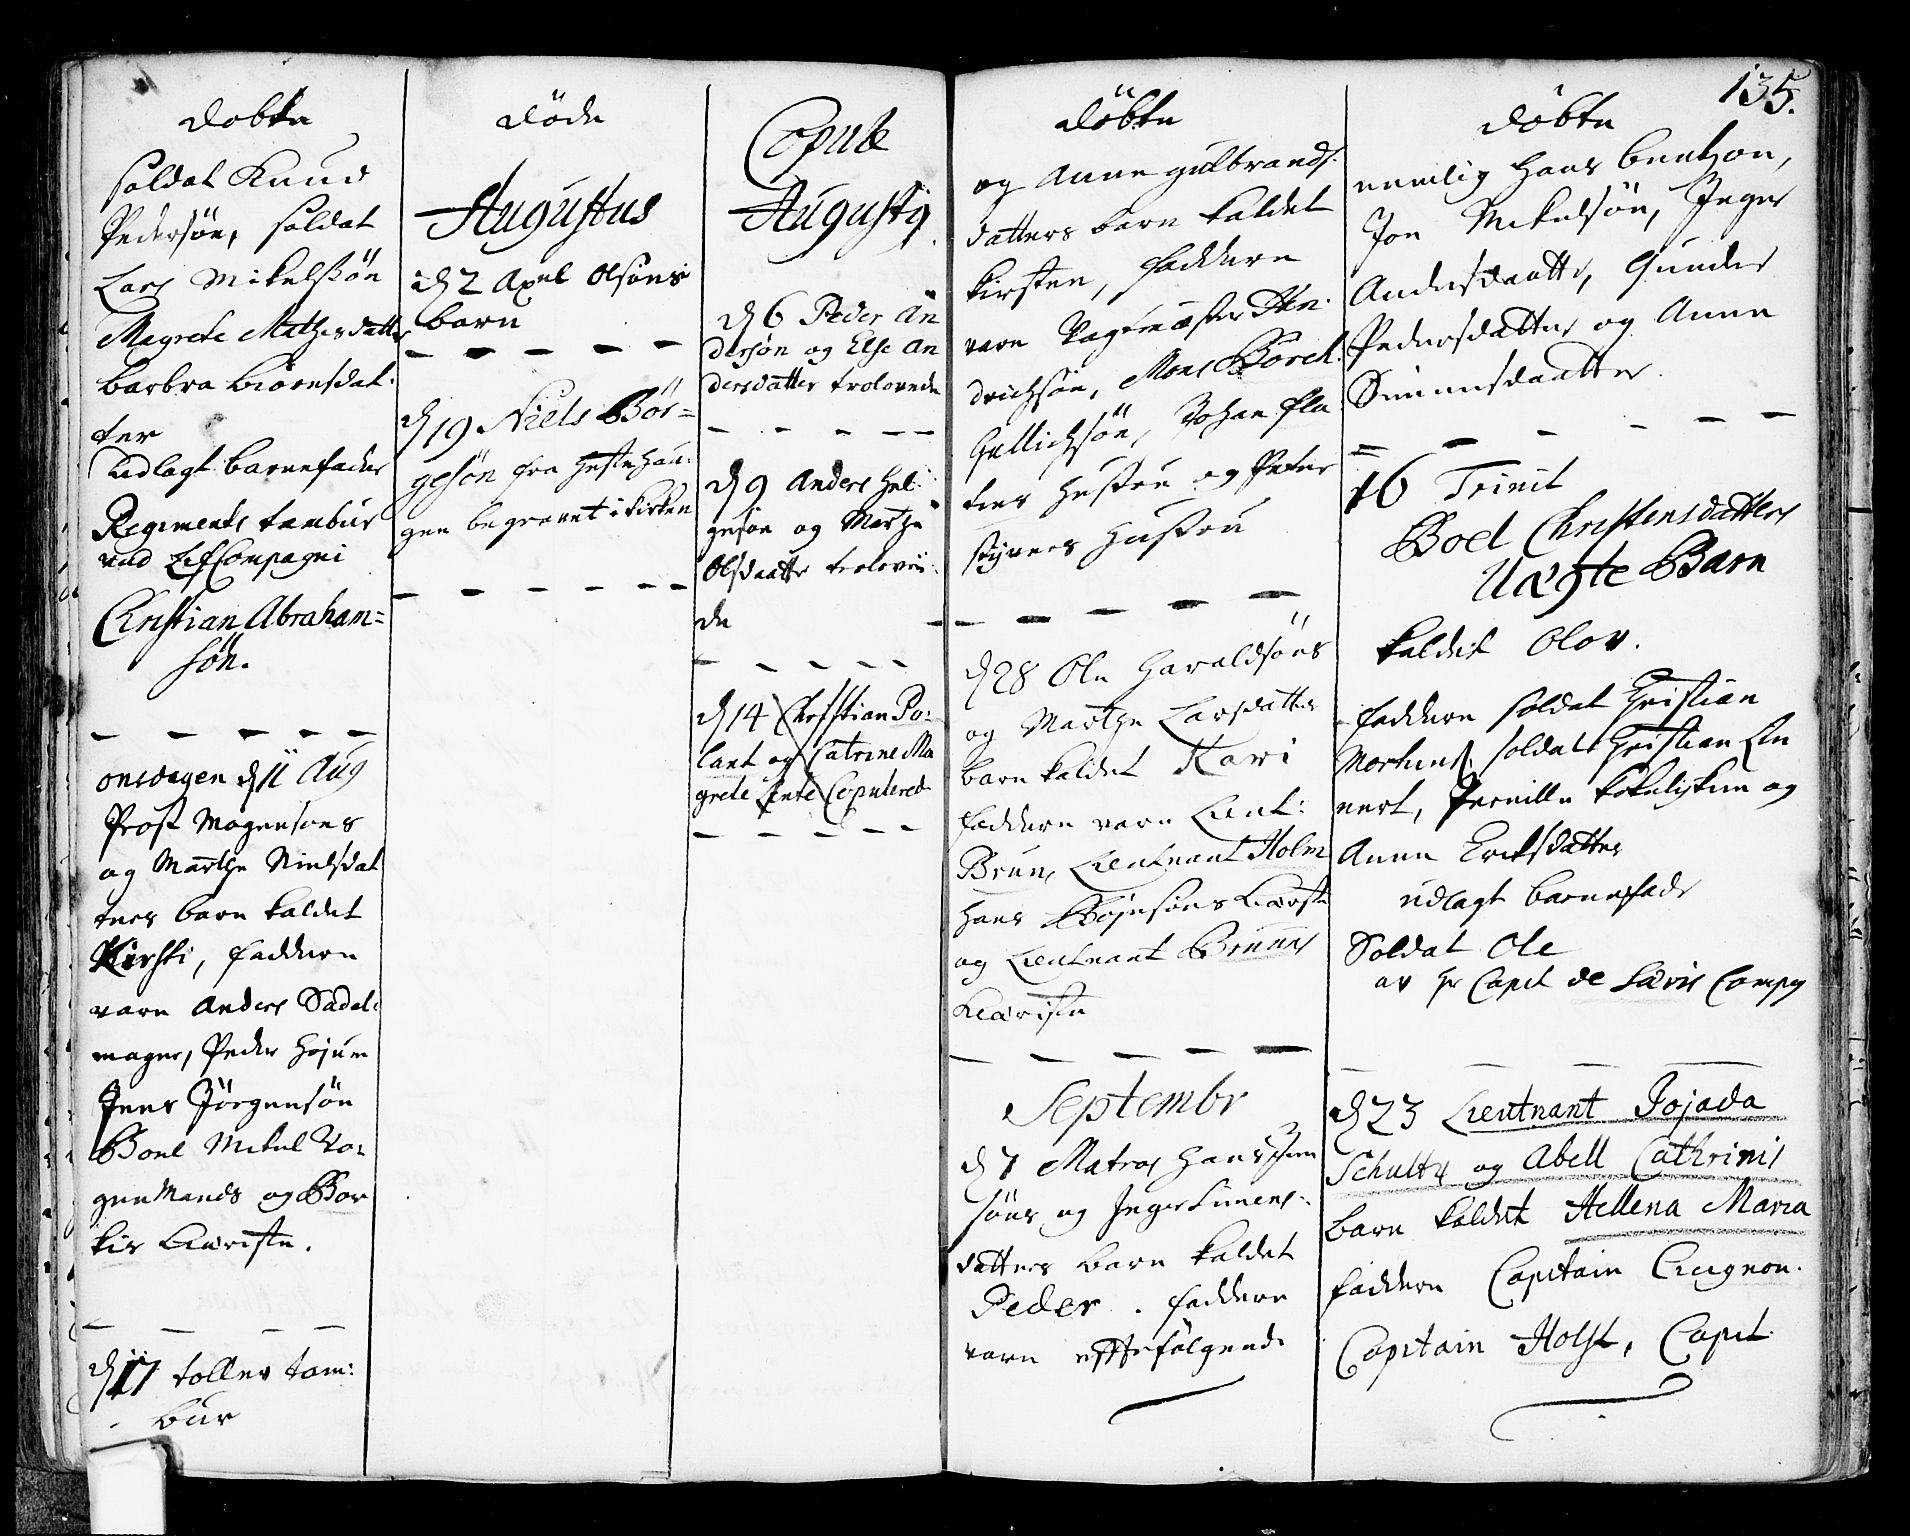 döbte
soldat Knud
Pedersön, soldat
Lars Mikelsön
Magrete Mathisdatter
barbra biörnsdat:
ter
udlagt barnefader
Regiments tambur
ved LifCompagni
Christian Abraham=
sön.
onsdagen d 11 Aug
Prost Mogensøns
og Marthe Nielsdat
ters barn kaldet
Kirsti, faddere
vare Anders Sadel:
mager, Peder Höjum
Jens Jörgensön
Boel Mikel
og Bor
kis Kiæriste.
d 17 tollev tam:
bur
döde
Augustus
d 2 Axel Olsöns
barn
d 19 Niels Bör=
gesön fra Hestehau:
gen begravet i kirken
Copule
Augusty
d 6 Peder An
dersön og Else An
dersdatter trolovede
d 9 Anders Hel:
gesön og Marthe
Olsdaatter trolove:
de
d 14 Christian Po:
lant og Catrine Ma
grete Lente Copulered
döbte
og Anne gulbrands:
datters barn kaldet
kirsten, faddere
vare Vagtmæster Hen:
drichsön, Mons Borel
Gullichsön, Johan
ters hustru og Peter
styvers hustru
d 28 Ole Haraldsöns
og Marthe Larsdatters
barn kaldet Kari
faddere vare Lieut:
Brun, Lieutnant Holm
Hans Böjesöns Kiæriste
og Lieutnant Bruns
Kiæriste
Septembr
d 7 Matros Hans Jen
söns og Inger Simens:
datters barn kaldet
Peder. faddere
vare efterfölgende
135.
döbte
nemlig Hans bentzon,
Jon Mikelsön, Inger
Andersdaatter, Gunder
Pedersdatter og Anne
Simensdaatter.
16 Trinit
Boel Christensdatters
Uægte Barn
kaldet Olov.
faddere soldat Christian
Mortens, soldat Christian Lin
nert, Pernille og
Anne Eriksdatter
udlagt barnefader
Soldat Ole
av Hr Capit de Særis Compg
d 23 Lieutnant Jojada
Schultz og Abell Cathrinis
barn kaldet Hellena Maria
faddere Capitain Crugnon.
Capitain Holst, Capit